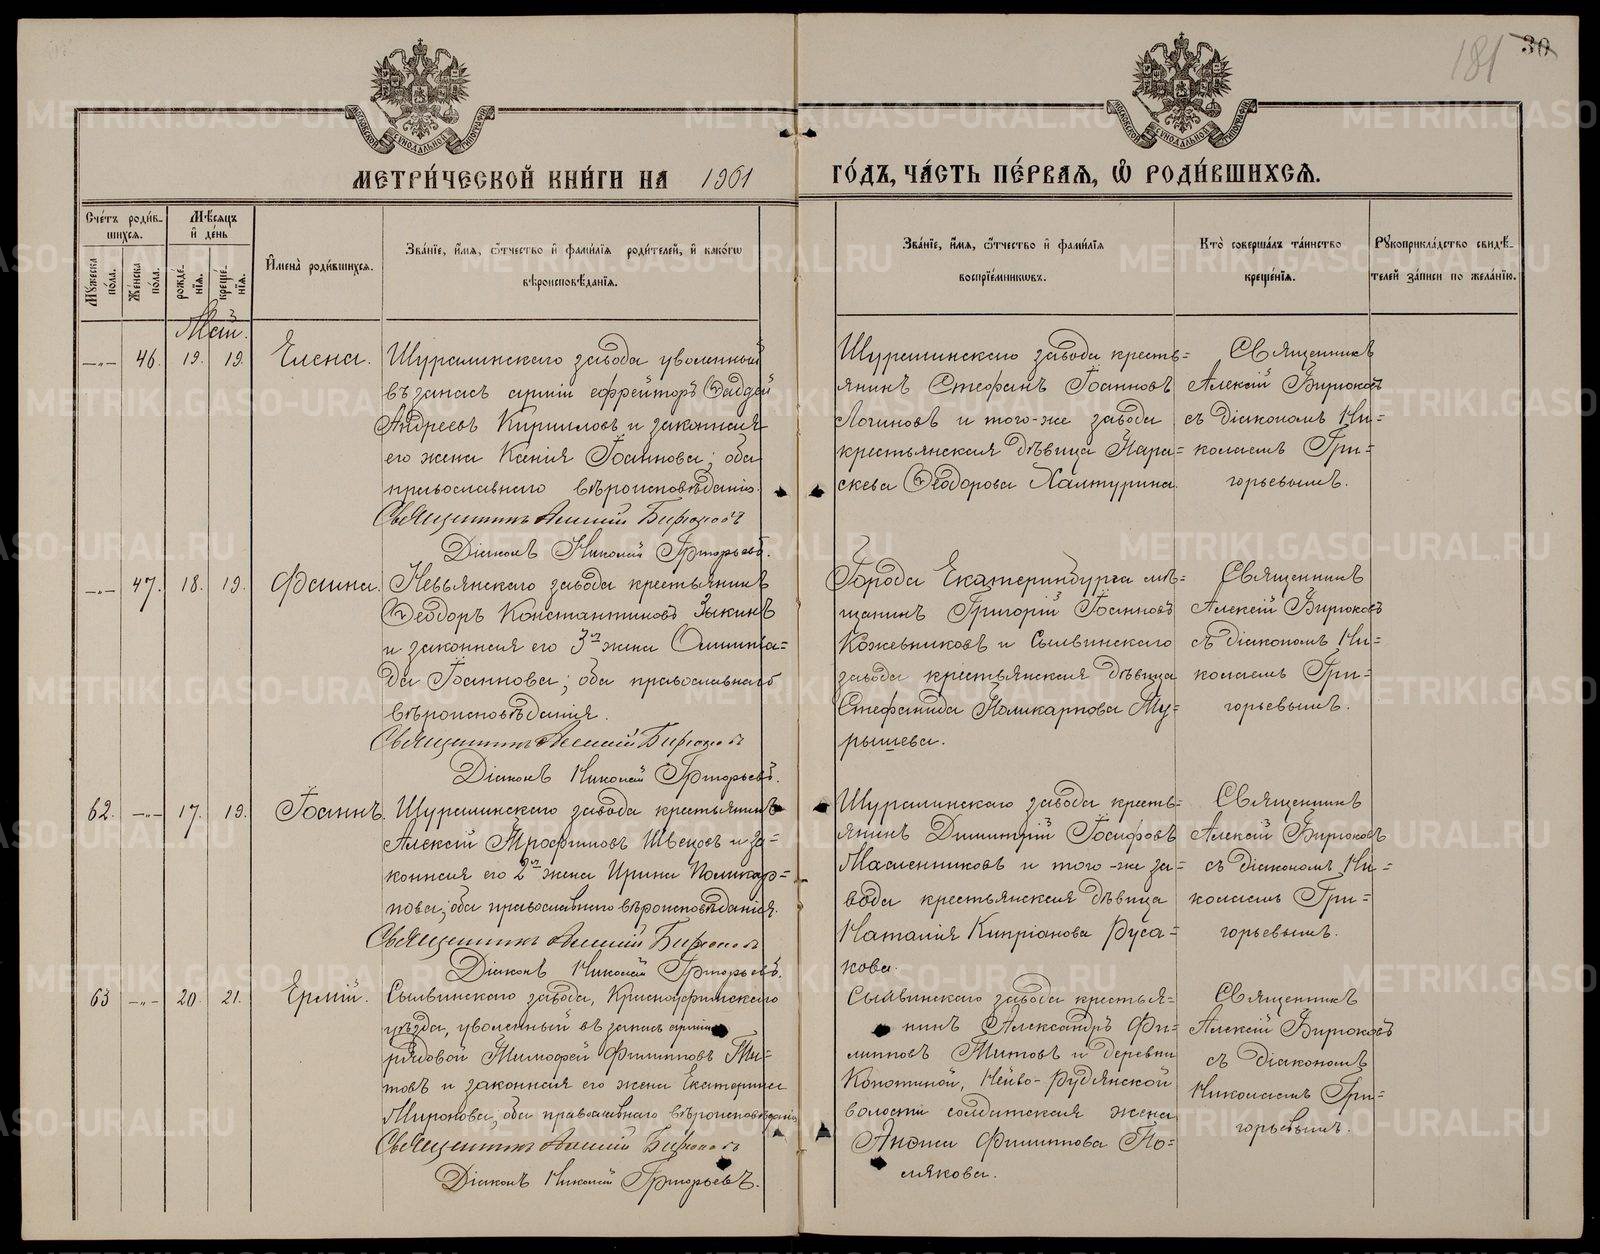 181 30
МОСКОВСКОЙ СѴНОДАЛЬНОЙ ТИПОГРАФІИ
МОСКОВСКОЙ СѴНОДАЛЬНОЙ ТИПОГРАФІИ
МЕТРИ́ЧЕСКОЙ КНИ́ГИ НА 1901 ГО́ДЪ, ЧА́СТЬ ПЕ́РВАЯ, Ѽ РОДИ́ВШИХСЯ.
Сче́тъ роди́в-
шихся.
Мꙋ́жеска по́ла.
Же́нска по́ла.
Мѣ́сяцъ и҆ де́нь
рожде́нїя.
креще́нїя.
И҆мена̀ роди́вшихся.
Зва́нїе, и҆́мя, ѻ҆́тчество и҆ фами́лїя роди́телей, и҆ како́гѡ
вѣроисповѣ́данїя.
Зва́нїе, и҆́мя, ѻ҆́тчество и҆ фами́лїя
воспрїе́мникѡвъ.
Кто̀ соверша́лъ та́инство
креще́нїя.
Рꙋкоприкла́дство свидѣ́-
телей за́писи по жела́нїю.
Май.
—„— 46. 19. 19. Елена.
Шуралинскаго завода уволенный
въ запасъ арміи ефрейторъ Ѳаддей
Андреевъ Кирилловъ и законная
его жена Ксенія Іоаннова; оба
православнаго вѣроисповѣданія.
Священникъ Алексій Бирюковъ
Діаконъ Николай Григорьевъ.
Шуралинскаго завода кресть=
янинъ Стефанъ Іоанновъ
Логиновъ и того-же завода
крестьянская дѣвица Пара=
скева Ѳеодорова Халтурина.
Священникъ
Алексій Бирюковъ
съ діакономъ Ни=
колаемъ Гри=
горьевымъ.
—„— 47. 18. 19. Фаина.
Невьянскаго завода крестьянинъ
Ѳеодоръ Константиновъ Зыкинъ
и законная его 3я жена Олимпіа=
да Іоаннова; оба православнаго
вѣроисповѣданія.
Священникъ Алексій Бирюковъ
Діаконъ Николай Григорьевъ.
Города Екатеринбурга мѣ=
щанинъ Григорій Іоанновъ
Кожевниковъ и Сылвинскаго
завода крестьянская дѣвица
Стефанида Поликарпова Му=
рышева.
Священникъ
Алексій Бирюковъ
съ діакономъ Ни=
колаемъ Гри=
горьевымъ.
62. —„— 17. 19. Іоаннъ.
Шуралинскаго завода крестьянинъ
Алексій Трофимовъ Швецовъ и за=
конная его 2я жена Ирина Поликар=
пова; оба православнаго вѣроисповѣданія.
Священникъ Алексій Бирюковъ
Діаконъ Николай Григорьевъ.
Шуралинскаго завода кресть=
янинъ Димитрій Іосифовъ
Масленниковъ и того-же за=
вода крестьянская дѣвица
Наталія Кипріанова Руса=
кова.
Священникъ
Алексій Бирюковъ
съ діакономъ Ни=
колаемъ Гри=
горьевымъ.
63 —„— 20. 21. Ермій.
Сылвинскаго завода, Красноуфимскаго
уѣзда, уволенный въ запасъ арміи
рядовой Тимофей Филипповъ Ти=
товъ и законная его жена Екатерина
Миронова; оба православнаго вѣроисповѣданія
Священникъ Алексій Бирюковъ
Діаконъ Николай Григорьевъ.
Сылвинскаго завода крестья=
нинъ Александръ Фи=
липповъ Титовъ и деревни
Копотиной, Нейво-Рудянской
волости солдатская жена
Анфиса Филиппова По=
лякова.
Священникъ
Алексій Бирюковъ
съ діакономъ
Николаемъ Гри=
горьевымъ.